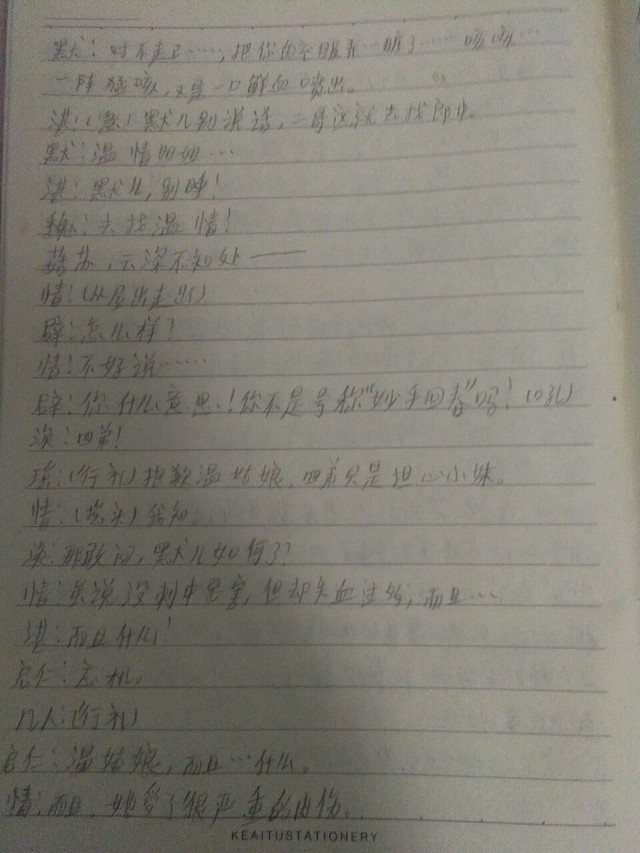 默：对不起……，把你的衣服弄…脏了……咳咳…
一阵猛咳，又是一口鲜血喷出。
湛：(急) 默儿别说话，二哥这就去找郎中。
默：温情姐姐…
湛：默儿，别睡！
魏：去找温情！
姑苏，云深不知处——
情：(从屋出走出)
辟：怎么样？
情：不好说……
辟：你什么意思！你不是号称“妙手回春”吗！(口孔)
涣：四弟！
瑶：(行礼) 抱歉温姑娘，四弟只是担心小妹。
情：(摇头) 我知
涣：那敢问，默儿如何了？
情：虽说没刺中要害，但却失血过多，而且…
湛：而且什么！
启仁：忘机，
几人：(行礼)
启仁：温姑娘，而且…什么。
情：而且，她受了很严重的内伤。
KEAITUSTATIONERY